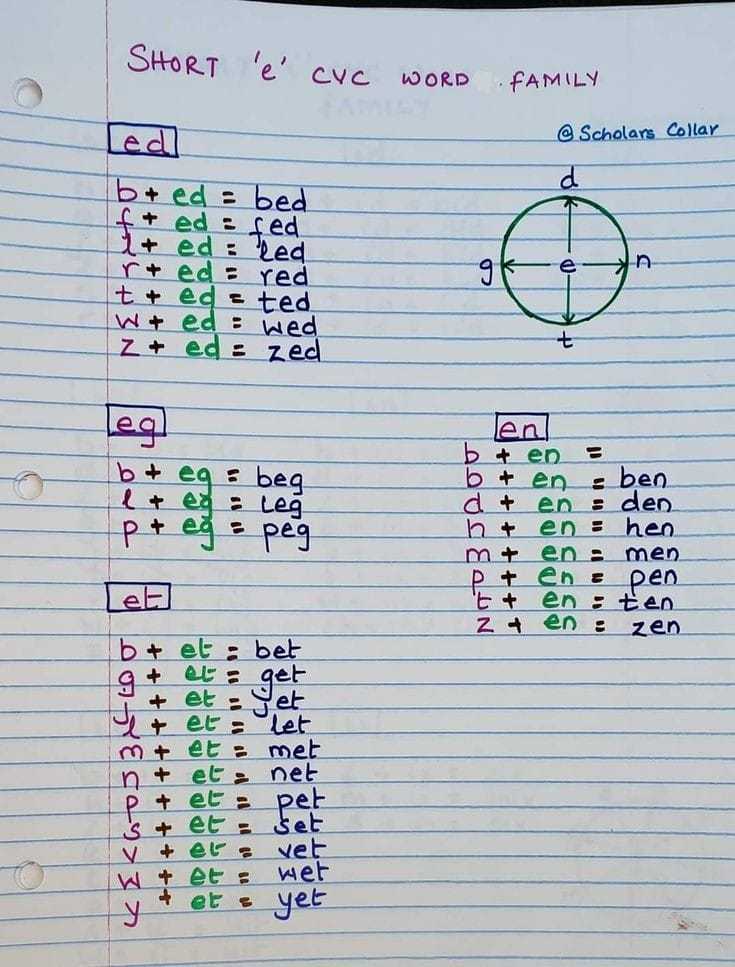 SHORT 'e' CVC WORD FAMILY
@ Scholars Collar
ed
b + ed = bed
f + ed = fed
l + ed = led
r + ed = red
t + ed = ted
w + ed = wed
z + ed = zed
d
g e n
t
eg
b + eg = beg
l + eg = leg
p + eg = peg
en
b + en =
b + en = ben
d + en = den
h + en = hen
m + en = men
p + en = pen
t + en = ten
z + en = zen
et
b + et = bet
g + et = get
j + et = jet
l + et = let
m + et = met
n + et = net
p + et = pet
s + et = set
v + et = vet
w + et = wet
y + et = yet